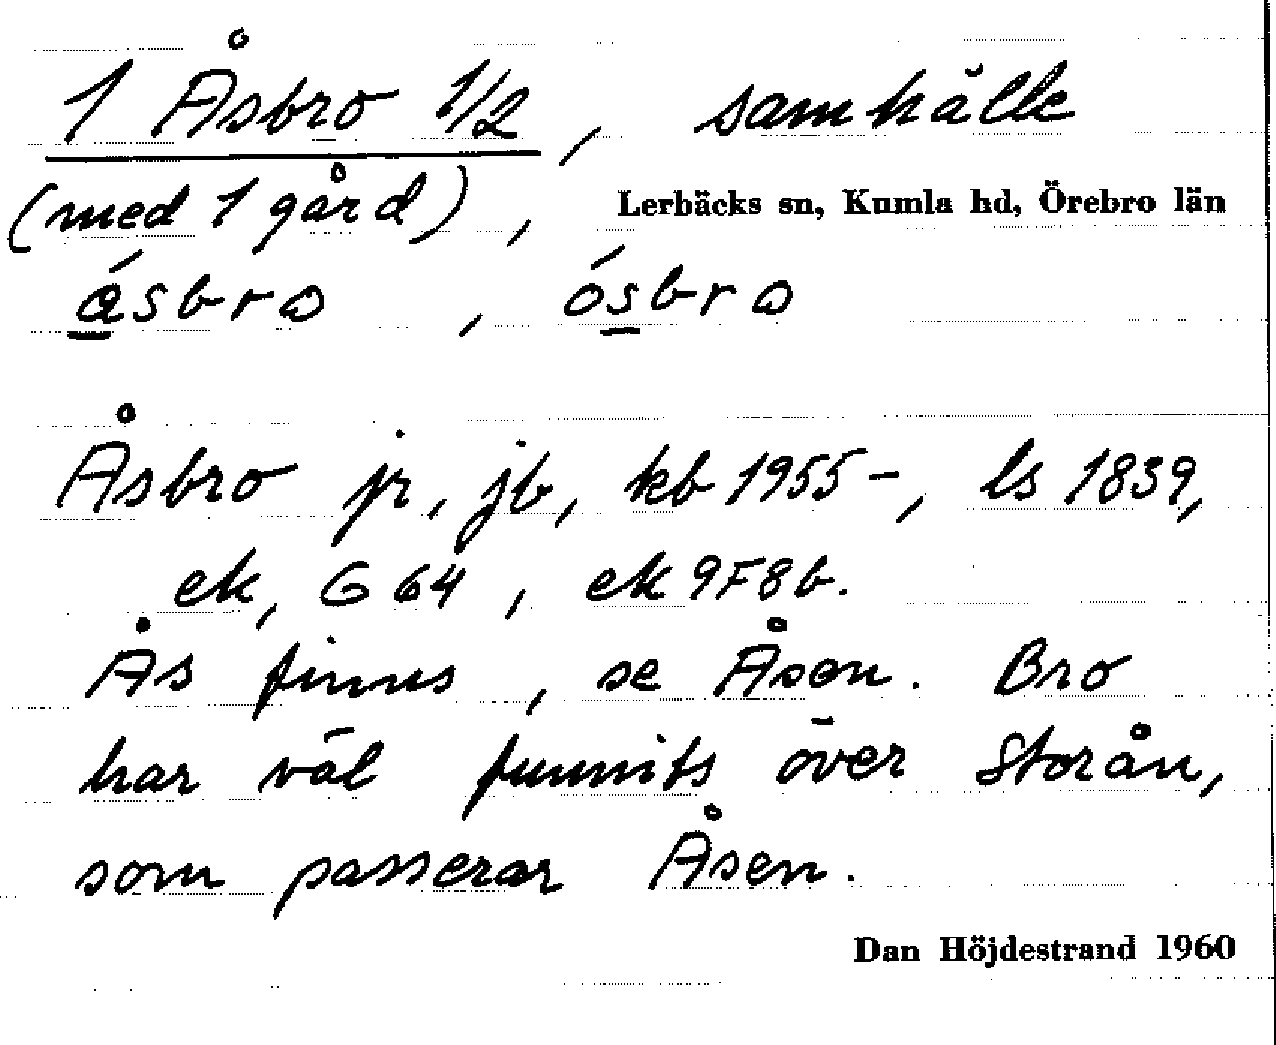 1 Åsbro 1/2, samhälle
(med 1 gård), Lerbäcks sn, Kumla hd, Örebro län
ásbro, ósbro
Åsbro jr, jb, kb 1955-, ls 1839,
ek, G 64, ek 9F8b.
Ås finns, se Åsen. Bro
har väl funnits över Storån,
som passerar Åsen.
Dan Höjdestrand 1960